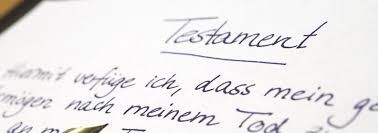 Testament
Hiermit verfüge ich, dass mein ge
rmögen nach meinem Tod
an m